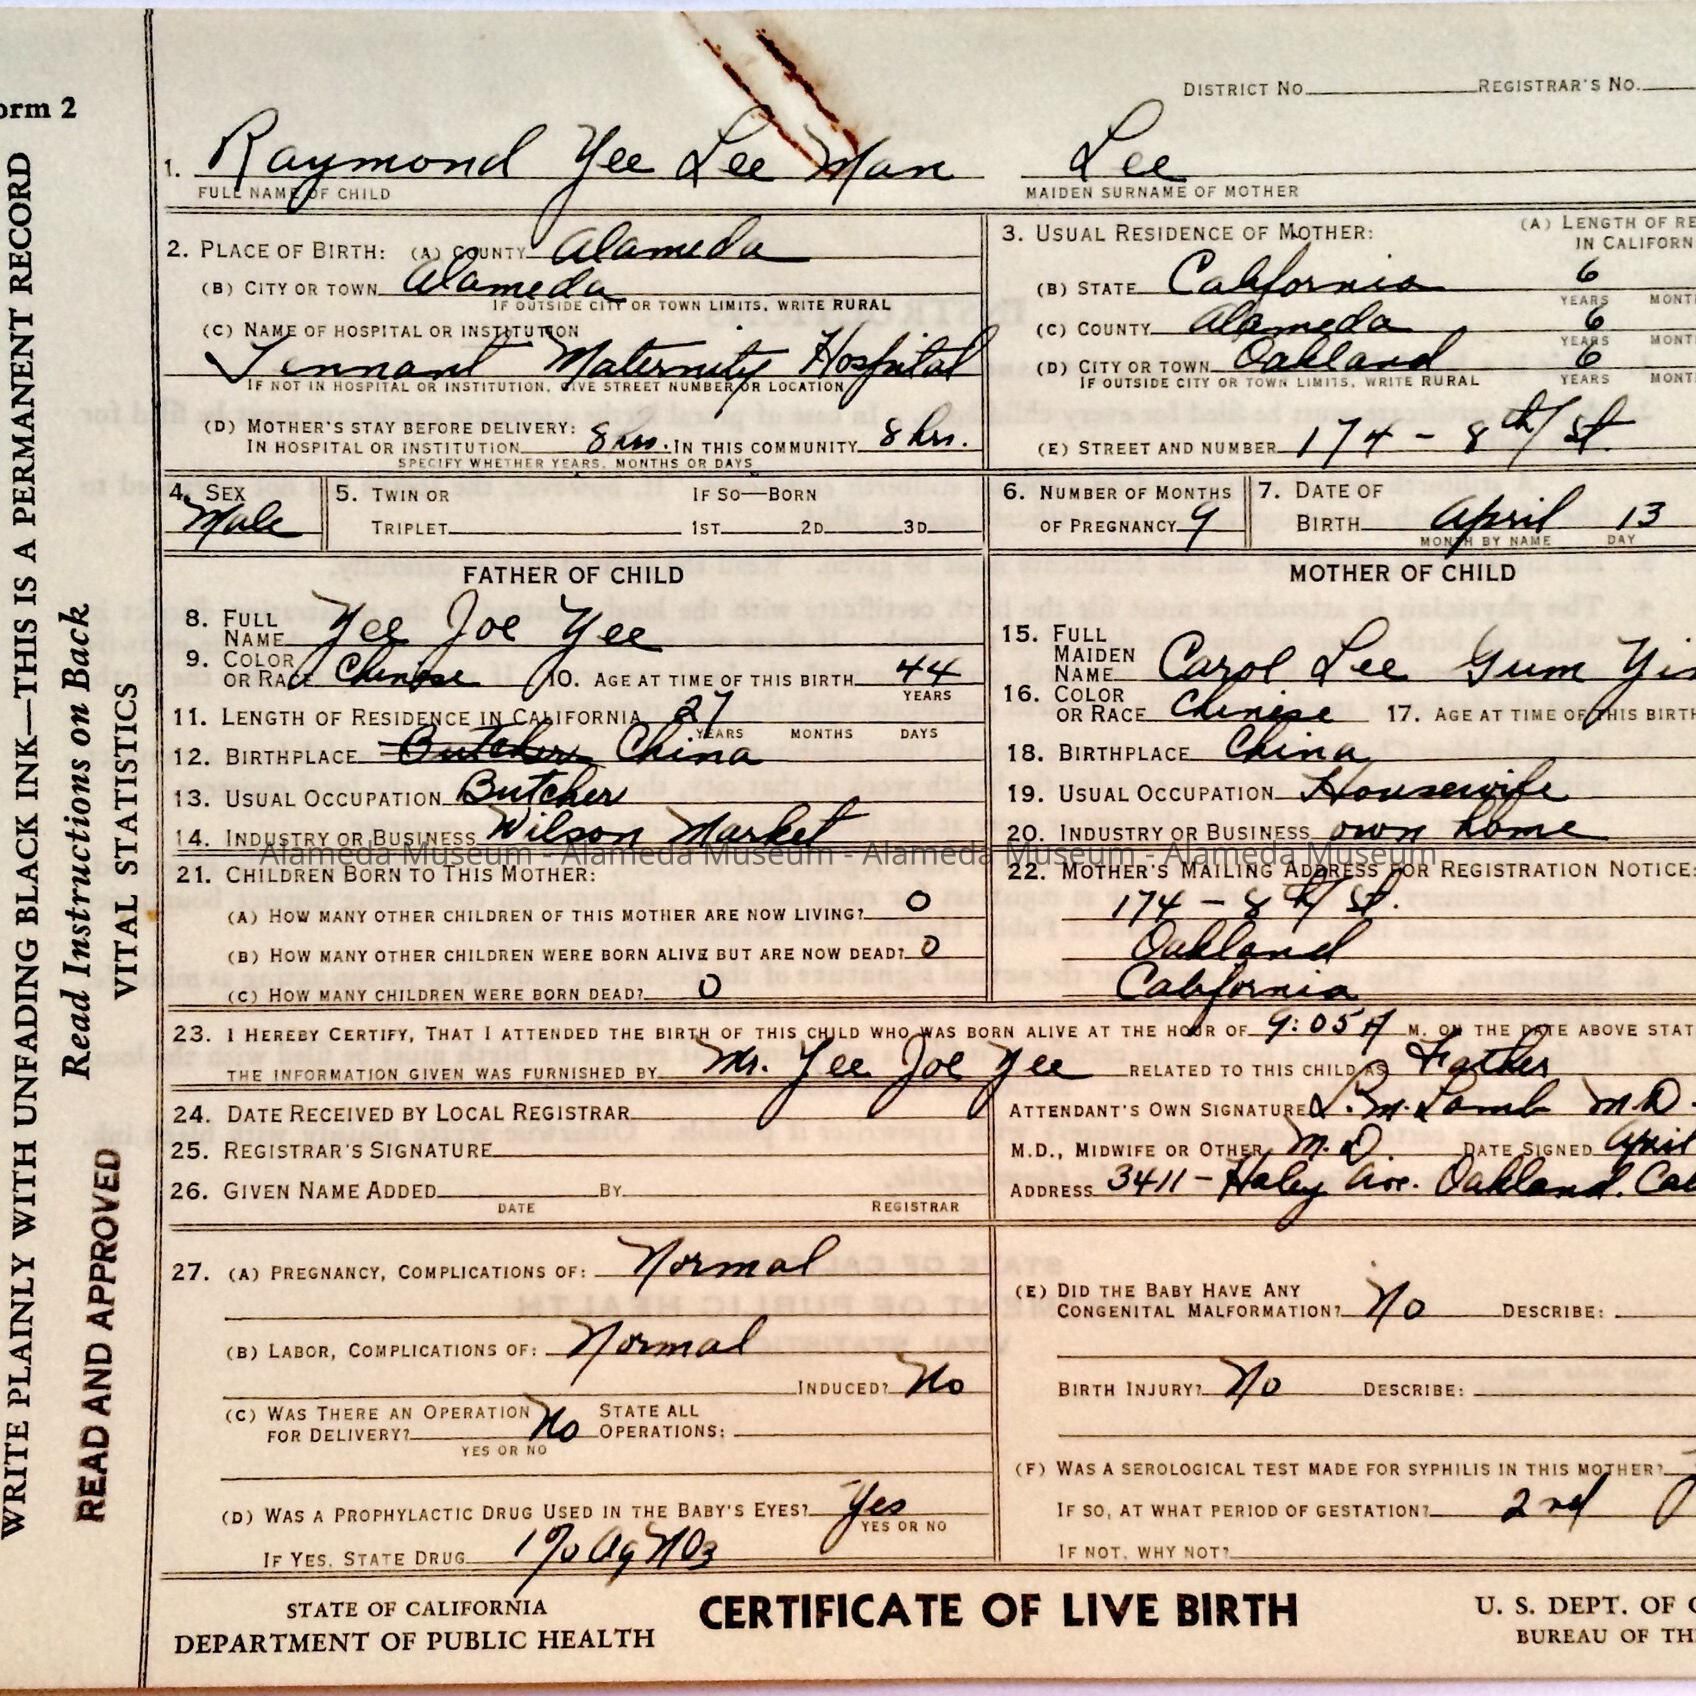 orm 2
WRITE PLAINLY WITH UNFADING BLACK INK—THIS IS A PERMANENT RECORD
Read Instructions on Back
VITAL STATISTICS
READ AND APPROVED
DISTRICT NO. REGISTRAR'S NO.
1. Raymond Yee Lee Man Lee
FULL NAME OF CHILD MAIDEN SURNAME OF MOTHER
2. PLACE OF BIRTH: (A) COUNTY Alameda
(B) CITY OR TOWN Alameda
IF OUTSIDE CITY OR TOWN LIMITS, WRITE RURAL
(C) NAME OF HOSPITAL OR INSTITUTION
Tennant Maternity Hospital
IF NOT IN HOSPITAL OR INSTITUTION, GIVE STREET NUMBER OR LOCATION
(D) MOTHER'S STAY BEFORE DELIVERY:
IN HOSPITAL OR INSTITUTION 8 hrs. IN THIS COMMUNITY 8 hrs.
SPECIFY WHETHER YEARS, MONTHS OR DAYS
3. USUAL RESIDENCE OF MOTHER: (A) LENGTH OF RE
IN CALIFORN
(B) STATE California 6
YEARS MONT
(C) COUNTY Alameda 6
YEARS MONT
(D) CITY OR TOWN Oakland 6
IF OUTSIDE CITY OR TOWN LIMITS, WRITE RURAL YEARS MONT
(E) STREET AND NUMBER 174 - 8th St.
4. SEX
Male
5. TWIN OR IF SO—BORN
TRIPLET 1ST 2D 3D
6. NUMBER OF MONTHS
OF PREGNANCY 9
7. DATE OF
BIRTH April 13
MONTH BY NAME DAY
FATHER OF CHILD
8. FULL
NAME Yee Joe Yee
9. COLOR
OR RACE Chinese 10. AGE AT TIME OF THIS BIRTH 44
YEARS
11. LENGTH OF RESIDENCE IN CALIFORNIA 27
YEARS MONTHS DAYS
12. BIRTHPLACE Butcher China
13. USUAL OCCUPATION Butcher
14. INDUSTRY OR BUSINESS Wilson Market
MOTHER OF CHILD
15. FULL
MAIDEN
NAME Carol Lee Gum Yin
16. COLOR
OR RACE Chinese 17. AGE AT TIME OF THIS BIRTH
18. BIRTHPLACE China
19. USUAL OCCUPATION Housewife
20. INDUSTRY OR BUSINESS own home
Alameda Museum - Alameda Museum - Alameda Museum - Alameda Museum
21. CHILDREN BORN TO THIS MOTHER:
(A) HOW MANY OTHER CHILDREN OF THIS MOTHER ARE NOW LIVING? 0
(B) HOW MANY OTHER CHILDREN WERE BORN ALIVE BUT ARE NOW DEAD? 0
(C) HOW MANY CHILDREN WERE BORN DEAD? 0
22. MOTHER'S MAILING ADDRESS FOR REGISTRATION NOTICE:
174 - 8th St.
Oakland
California
23. I HEREBY CERTIFY, THAT I ATTENDED THE BIRTH OF THIS CHILD WHO WAS BORN ALIVE AT THE HOUR OF 9:05 A M. ON THE DATE ABOVE STAT
THE INFORMATION GIVEN WAS FURNISHED BY Mr. Yee Joe Yee RELATED TO THIS CHILD AS Father
24. DATE RECEIVED BY LOCAL REGISTRAR
25. REGISTRAR'S SIGNATURE
26. GIVEN NAME ADDED BY
DATE REGISTRAR
ATTENDANT'S OWN SIGNATURE L. M. Lamb M.D.
M.D., MIDWIFE OR OTHER M.D. DATE SIGNED April
ADDRESS 3411 - Haley Ave. Oakland, Cal
27. (A) PREGNANCY, COMPLICATIONS OF: Normal
(B) LABOR, COMPLICATIONS OF: Normal
INDUCED? No
(C) WAS THERE AN OPERATION STATE ALL
FOR DELIVERY? No OPERATIONS:
YES OR NO
(D) WAS A PROPHYLACTIC DRUG USED IN THE BABY'S EYES? Yes
YES OR NO
IF YES, STATE DRUG 1% AgNO3
(E) DID THE BABY HAVE ANY
CONGENITAL MALFORMATION? No DESCRIBE:
BIRTH INJURY? No DESCRIBE:
(F) WAS A SEROLOGICAL TEST MADE FOR SYPHILIS IN THIS MOTHER?
IF SO, AT WHAT PERIOD OF GESTATION? 2nd
IF NOT, WHY NOT?
STATE OF CALIFORNIA
DEPARTMENT OF PUBLIC HEALTH
CERTIFICATE OF LIVE BIRTH
U. S. DEPT. OF C
BUREAU OF TH